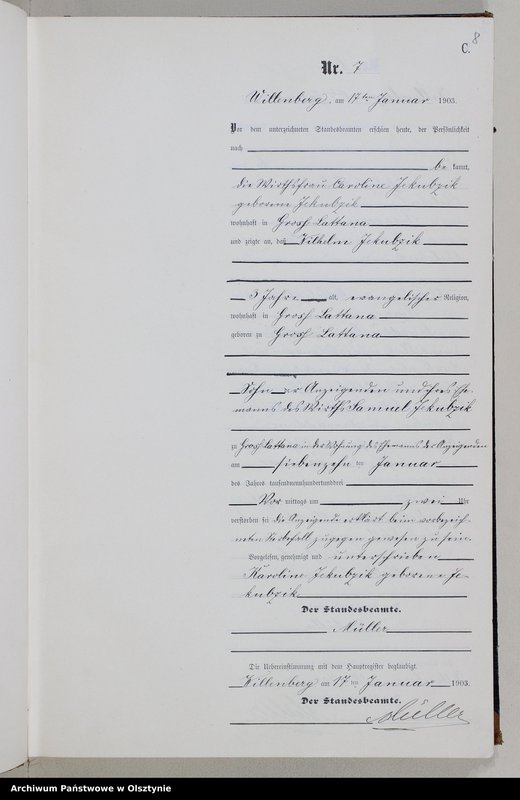 8
C.
Nr. 7
Willenberg, am 17ten Januar 1903.
Vor dem unterzeichneten Standesbeamten erschien heute, der Persönlichkeit
nach
be kannt,
die Wirthsfrau Caroline Jekubzik
geborene Jekubzik
wohnhaft in Gross Lattana
und zeigte an, daß Wilhelm Jekubzik
3 Jahre alt, evangelischer Religion,
wohnhaft in Gross Lattana
geboren zu Gross Lattana
Sohn der Anzeigenden und ihres Ehe-
manns des Wirths Samuel Jekubzik
zu Gross Lattana in der Wohnung des Ehemanns der Anzeigenden
am siebenzehn ten Januar
des Jahres tausendneunhundertunddrei
Vor mittags um zwei Uhr
verstorben sei die Anzeigende erklärt beim vorbezeich-
neten Sterbefall zugegen gewesen zu sein.
Vorgelesen, genehmigt und unterschrieben
Karoline Jekubzik geborene Je-
kubzik
Der Standesbeamte.
Müller
Die Uebereinstimmung mit dem Hauptregister beglaubigt.
Willenberg am 17ten Januar 1903.
Der Standesbeamte.
Müller
Archiwum Państwowe w Olsztynie